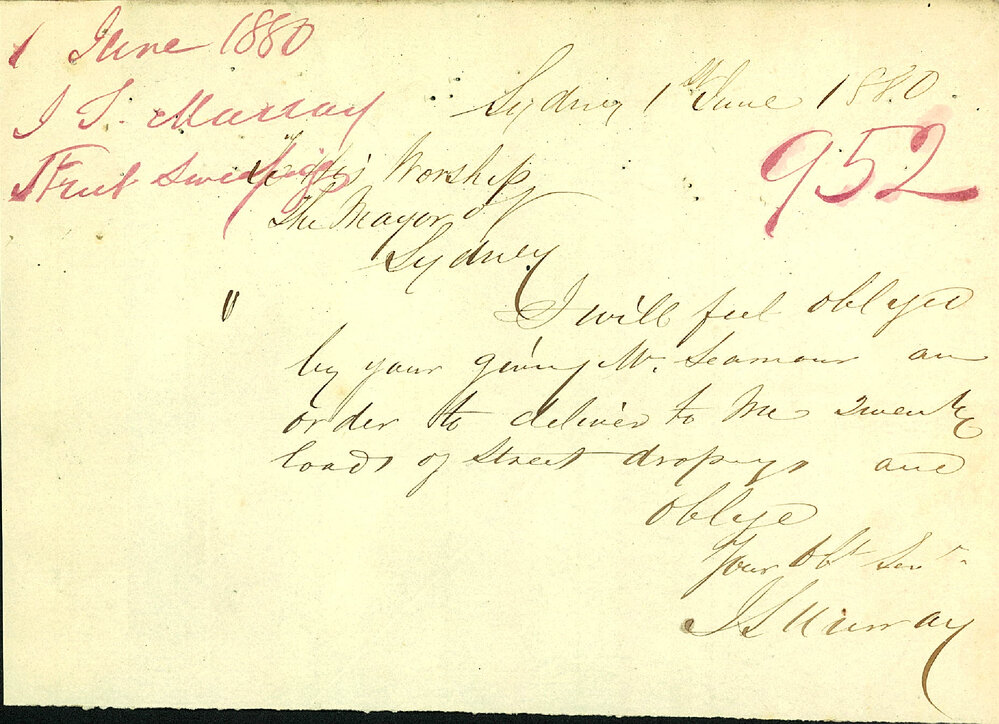 1 June 1880
J S. Murray
Street Sweepings
952
Sydney 1st June 1880.
To His Worship
The Mayor of
Sydney
"
I will feel oblyed
by your giving Mr. Seamour an
order to deliver to Me Twenty
loads of Street dropings and
oblye
Your Obt Servt
J S Murray